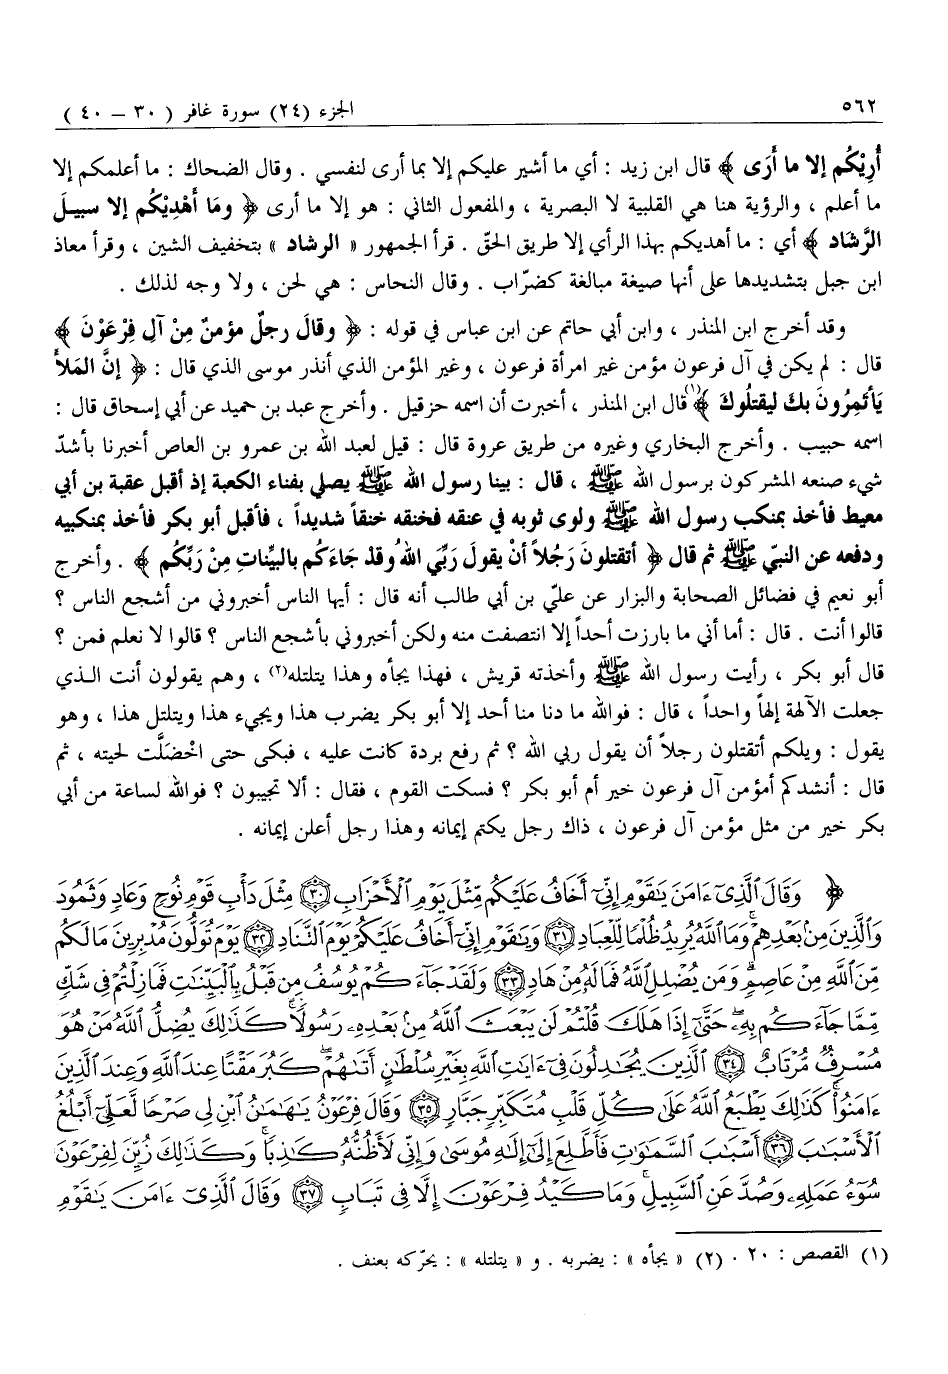 ٥٦٢ الجزء (٢٤) سورة غافر ( ٣٠ – ٤٠ )
أُرِيْكُم إلا ما أَرَى ﴾ قال ابن زيد : أي ما أشير عليكم إلا بما أرى لنفسي . وقال الضحاك : ما أعلمكم إلا
ما أعلم ، والرؤية هنا هي القلبية لا البصرية ، والمفعول الثاني : هو إلا ما أرى ﴿ ومَا أَهْدِيْكُم إلا سبيـلَ
الرَّشَاد ﴾ أي : ما أهديكم بهذا الرأي إلا طريق الحقّ . قرأ الجمهور « الرشاد » بتخفيف الشين ، وقرأ معاذ
ابن جبل بتشديدها على أنها صيغة مبالغة كضرّاب . وقال النحاس : هي لحن ، ولا وجه لذلك .
وقد أخرج ابن المنذر ، وابن أبي حاتم عن ابن عباس في قوله : ﴿ وقالَ رجلٌ مؤمنٌ مِنْ آلِ فِرْعَوْنَ ﴾
قال : لم يكن في آل فرعون مؤمن غير امرأة فرعون ، وغير المؤمن الذي أنذر موسى الذي قال : ﴿ إنَّ المَلأَ
يَأتَمِرُونَ بكَ ليقتلُوكَ ﴾(١) قال ابن المنذر ، أخبرت أن اسمه حزقيل . وأخرج عبد بن حميد عن أبي إسحاق قال :
اسمه حبيب . وأخرج البخاري وغيره من طريق عروة قال : قيل لعبد الله بن عمرو بن العاص أخبرنا بأشدّ
شيء صنعه المشركون برسول الله ﷺ ، قال : بينا رسول الله ﷺ يصلي بفناء الكعبة إذ أقبل عقبة بن أبي
معيط فأخذ بمنكب رسول الله ﷺ ولوى ثوبه في عنقه فخنقه خنقاً شديداً ، فأقبل أبو بكر فأخذ بمنكبيه
ودفعه عن النبيّ ﷺ ثم قال ﴿ أتقتلونَ رَجُلاً أنْ يقولَ رَبِّيَ اللهُ وقدْ جَاءَكُم بالبيِّناتِ مِنْ رَبِّكُم ﴾ . وأخرج
أبو نعيم في فضائل الصحابة والبزار عن عليّ بن أبي طالب أنه قال : أيها الناس أخبروني من أشجع الناس ؟
قالوا أنت . قال : أما أني ما بارزت أحداً إلا انتصفت منه ولكن أخبروني بأشجع الناس ؟ قالوا لا نعلم فمن ؟
قال أبو بكر ، رأيت رسول الله ﷺ وأخذته قريش ، فهذا يجأه وهذا يتلتله(٢) ، وهم يقولون أنت الـذي
جعلت الآلهة إلهاً واحداً ، قال : فوالله ما دنا منا أحد إلا أبو بكر يضرب هذا ويجيء هذا ويتلتل هذا ، وهو
يقول : ويلكم أتقتلون رجلاً أن يقول ربي الله ؟ ثم رفع بردة كانت عليه ، فبكى حتى اخْضَلَّت لحيته ، ثم
قال : أنشدكم أمؤمن آل فرعون خير أم أبو بكر ؟ فسكت القوم ، فقال : ألا تجيبون ؟ فوالله لساعة من أبي
بكر خير من مثل مؤمن آل فرعون ، ذاك رجل يكتم إيمانه وهذا رجل أعلن إيمانه .
﴿ وَقَالَ ٱلَّذِىٓ ءَامَنَ يَٰقَوْمِ إِنِّىٓ أَخَافُ عَلَيْكُم مِّثْلَ يَوْمِ ٱلْأَحْزَابِ ٣٠ مِثْلَ دَأْبِ قَوْمِ نُوحٍ وَعَادٍ وَثَمُودَ
وَٱلَّذِينَ مِنۢ بَعْدِهِمْ وَمَا ٱللَّهُ يُرِيدُ ظُلْمًا لِّلْعِبَادِ ٣١ وَيَٰقَوْمِ إِنِّىٓ أَخَافُ عَلَيْكُمْ يَوْمَ ٱلتَّنَادِ ٣٢ يَوْمَ تُوَلُّونَ مُدْبِرِينَ مَا لَكُم
مِّنَ ٱللَّهِ مِنْ عَاصِمٍ وَمَن يُضْلِلِ ٱللَّهُ فَمَا لَهُۥ مِنْ هَادٍ ٣٣ وَلَقَدْ جَآءَكُمْ يُوسُفُ مِن قَبْلُ بِٱلْبَيِّنَٰتِ فَمَا زِلْتُمْ فِى شَكٍّ
مِّمَّا جَآءَكُم بِهِۦ حَتَّىٰٓ إِذَا هَلَكَ قُلْتُمْ لَن يَبْعَثَ ٱللَّهُ مِنۢ بَعْدِهِۦ رَسُولًا كَذَٰلِكَ يُضِلُّ ٱللَّهُ مَنْ هُوَ
مُسْرِفٌ مُّرْتَابٌ ٣٤ ٱلَّذِينَ يُجَٰدِلُونَ فِىٓ ءَايَٰتِ ٱللَّهِ بِغَيْرِ سُلْطَٰنٍ أَتَىٰهُمْ كَبُرَ مَقْتًا عِندَ ٱللَّهِ وَعِندَ ٱلَّذِينَ
ءَامَنُوا۟ كَذَٰلِكَ يَطْبَعُ ٱللَّهُ عَلَىٰ كُلِّ قَلْبِ مُتَكَبِّرٍ جَبَّارٍ ٣٥ وَقَالَ فِرْعَوْنُ يَٰهَٰمَٰنُ ٱبْنِ لِى صَرْحًا لَّعَلِّىٓ أَبْلُغُ
ٱلْأَسْبَٰبَ ٣٦ أَسْبَٰبَ ٱلسَّمَٰوَٰتِ فَأَطَّلِعَ إِلَىٰٓ إِلَٰهِ مُوسَىٰ وَإِنِّى لَأَظُنُّهُۥ كَٰذِبًا وَكَذَٰلِكَ زُيِّنَ لِفِرْعَوْنَ
سُوٓءُ عَمَلِهِۦ وَصُدَّ عَنِ ٱلسَّبِيلِ وَمَا كَيْدُ فِرْعَوْنَ إِلَّا فِى تَبَابٍ ٣٧ وَقَالَ ٱلَّذِىٓ ءَامَنَ يَٰقَوْمِ
(١) القصص : ٢٠ . (٢) « يجأه » : يضربه . و « يتلتله » : يحرّكه بعنف .